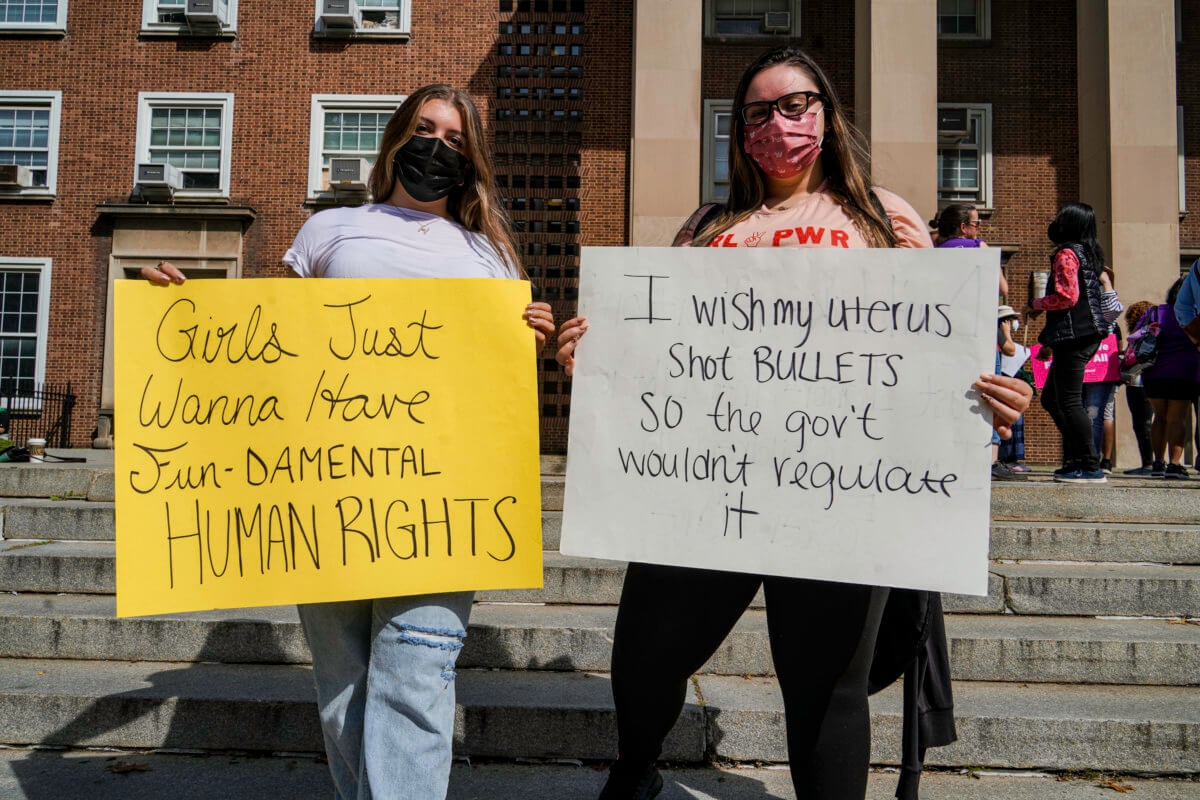 Girls Just
Wanna Have
Fun-DAMENTAL
HUMAN RIGHTS
I wish my uterus
shot BULLETS
so the gov't
wouldn't regulate
it
RL PWR
All